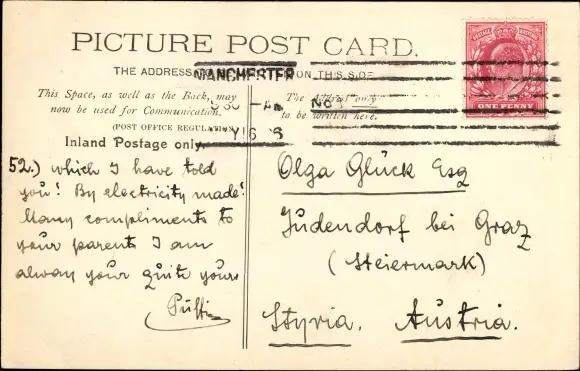 PICTURE POST CARD.
THE ADDRESS ON THIS SIDE
MANCHESTER
This Space, as well as the Back, may
now be used for Communication.
(POST OFFICE REGULATION)
Inland Postage only.
The Address only
to be written here.
POSTAGE REVENUE
ONE PENNY
52.) which I have told
you! By electricity made!
Many compliments to
your parents I am
alway your quite yours
Puffi
Olga Glück Esq
Judendorf bei Graz
(Steiermark)
Styria. Austria.